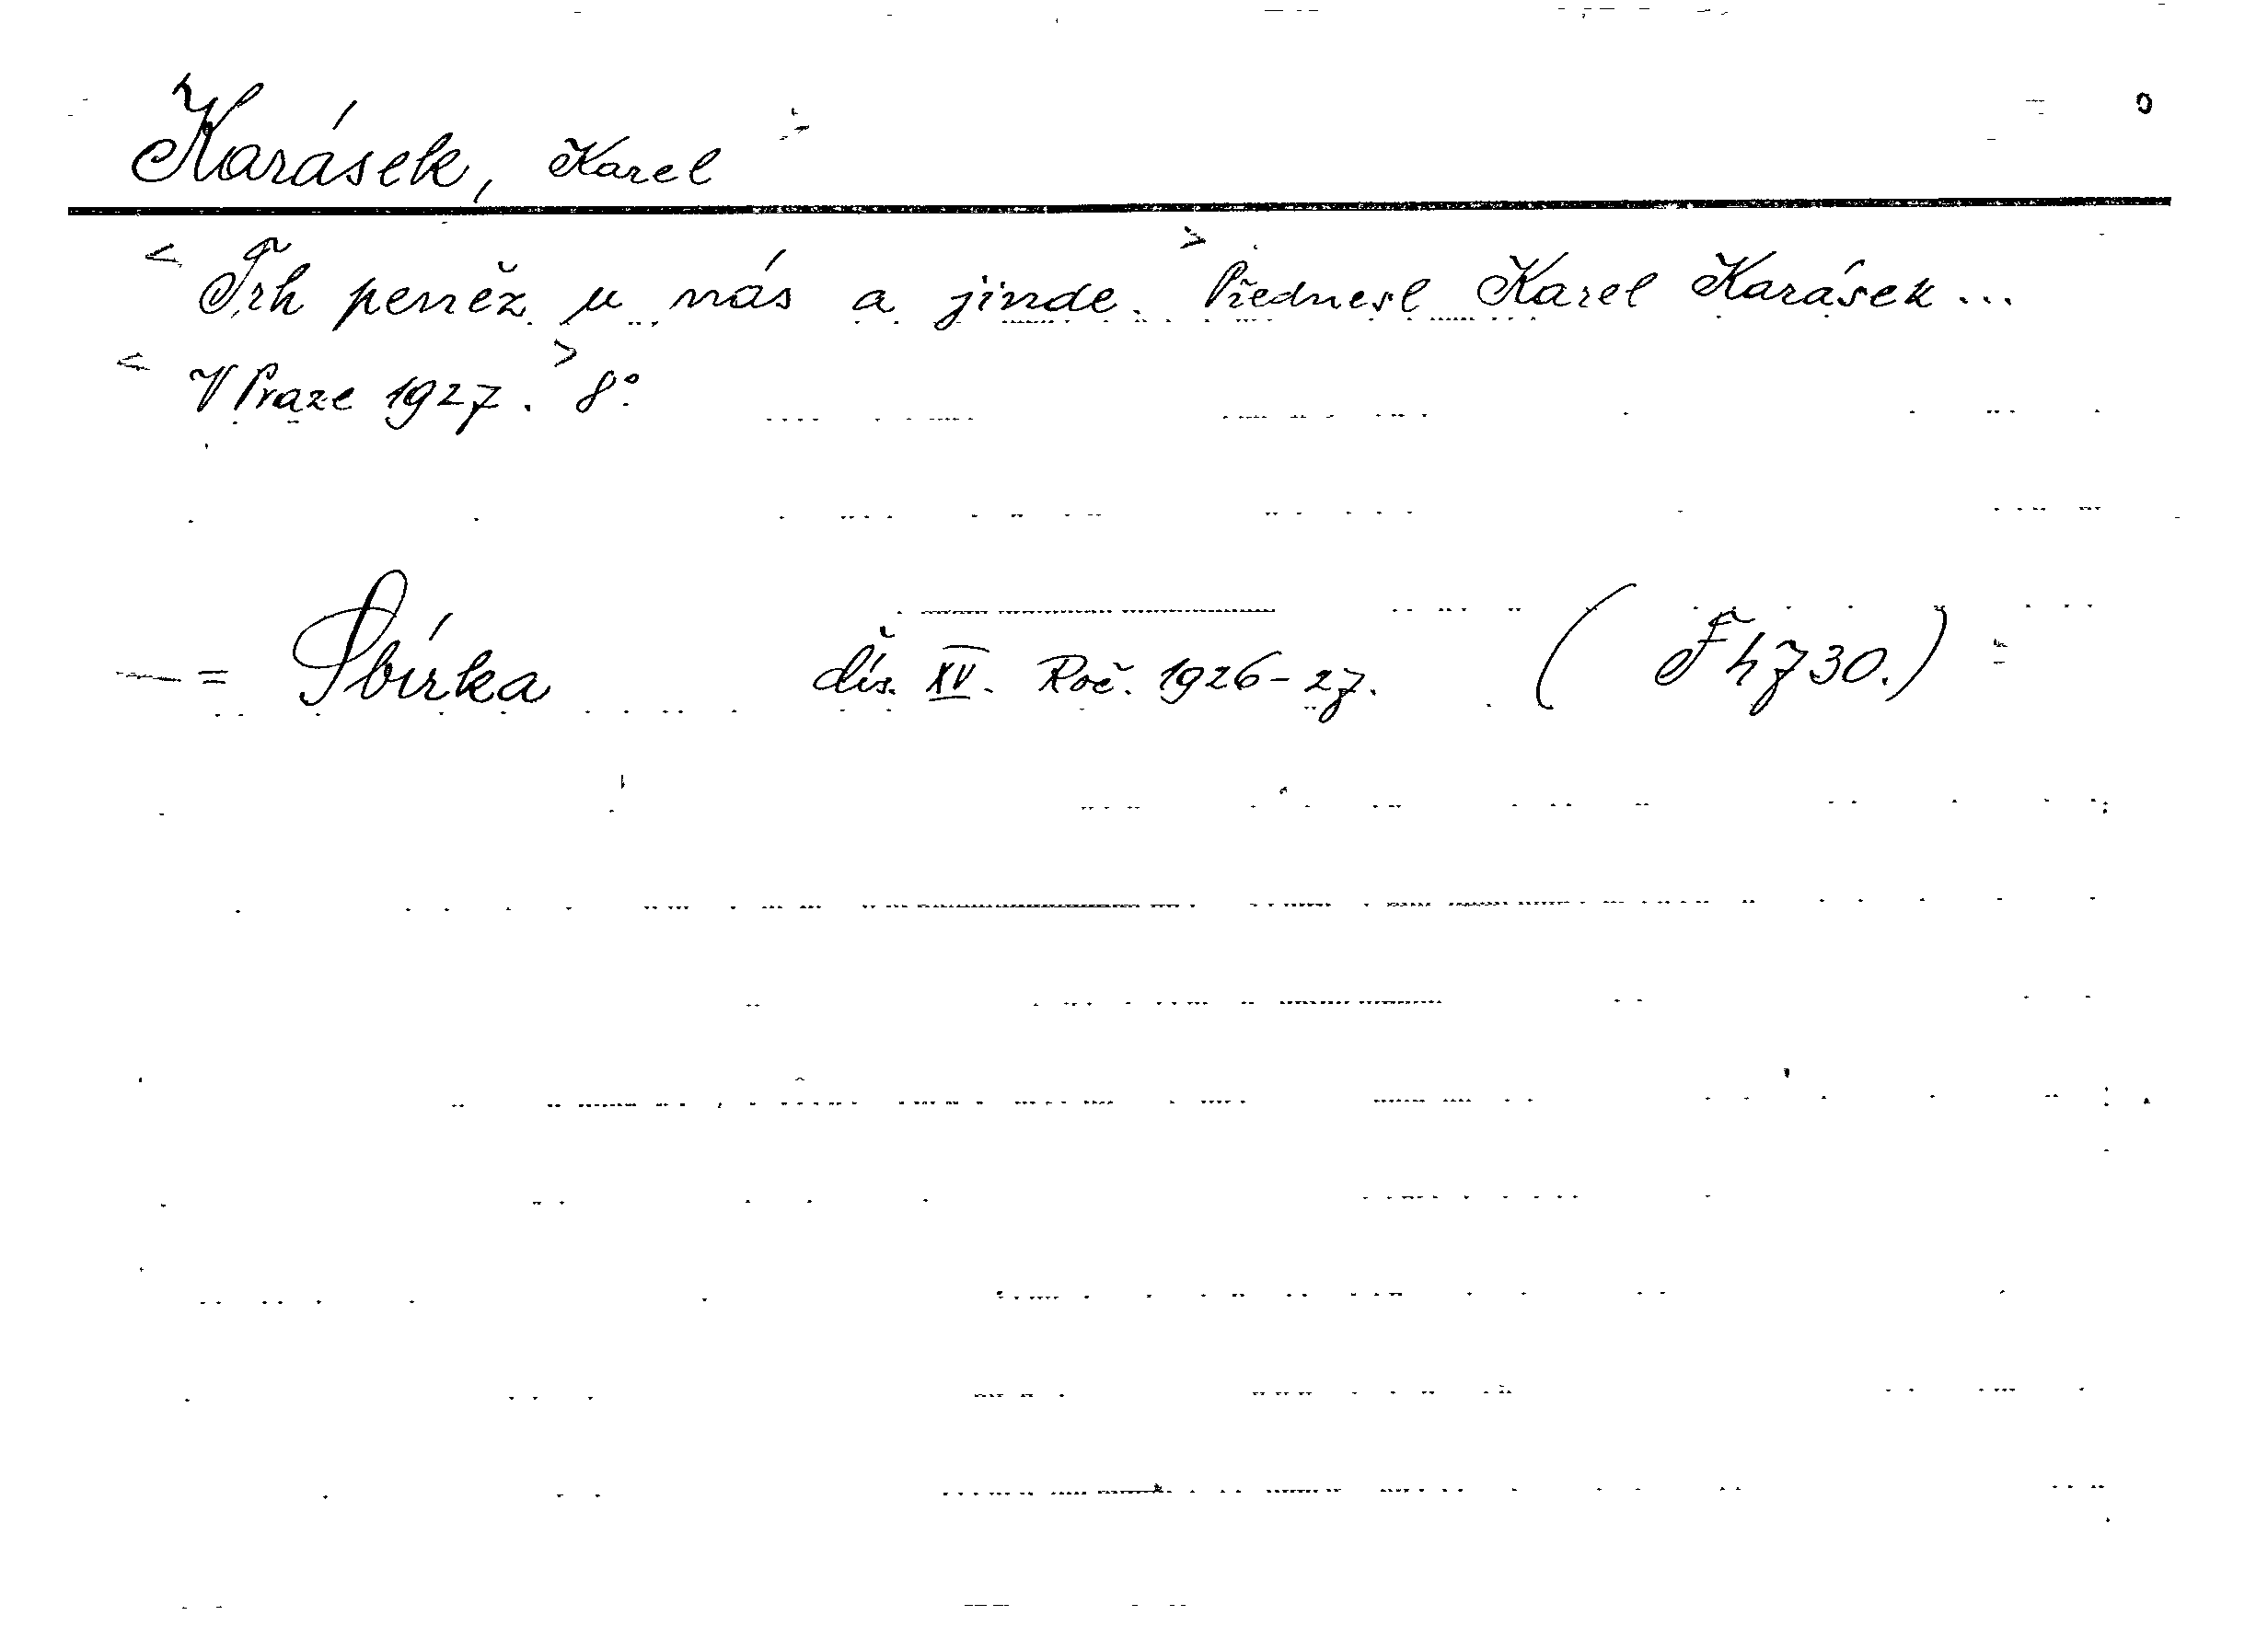 Karásek, Karel
< Trh peněz u nás a jinde. > Přednesl Karel Karásek...
< V Praze 1927. > 8°.
— = Sbírka čís. XV. Roč. 1926-27. (F h 730.) =